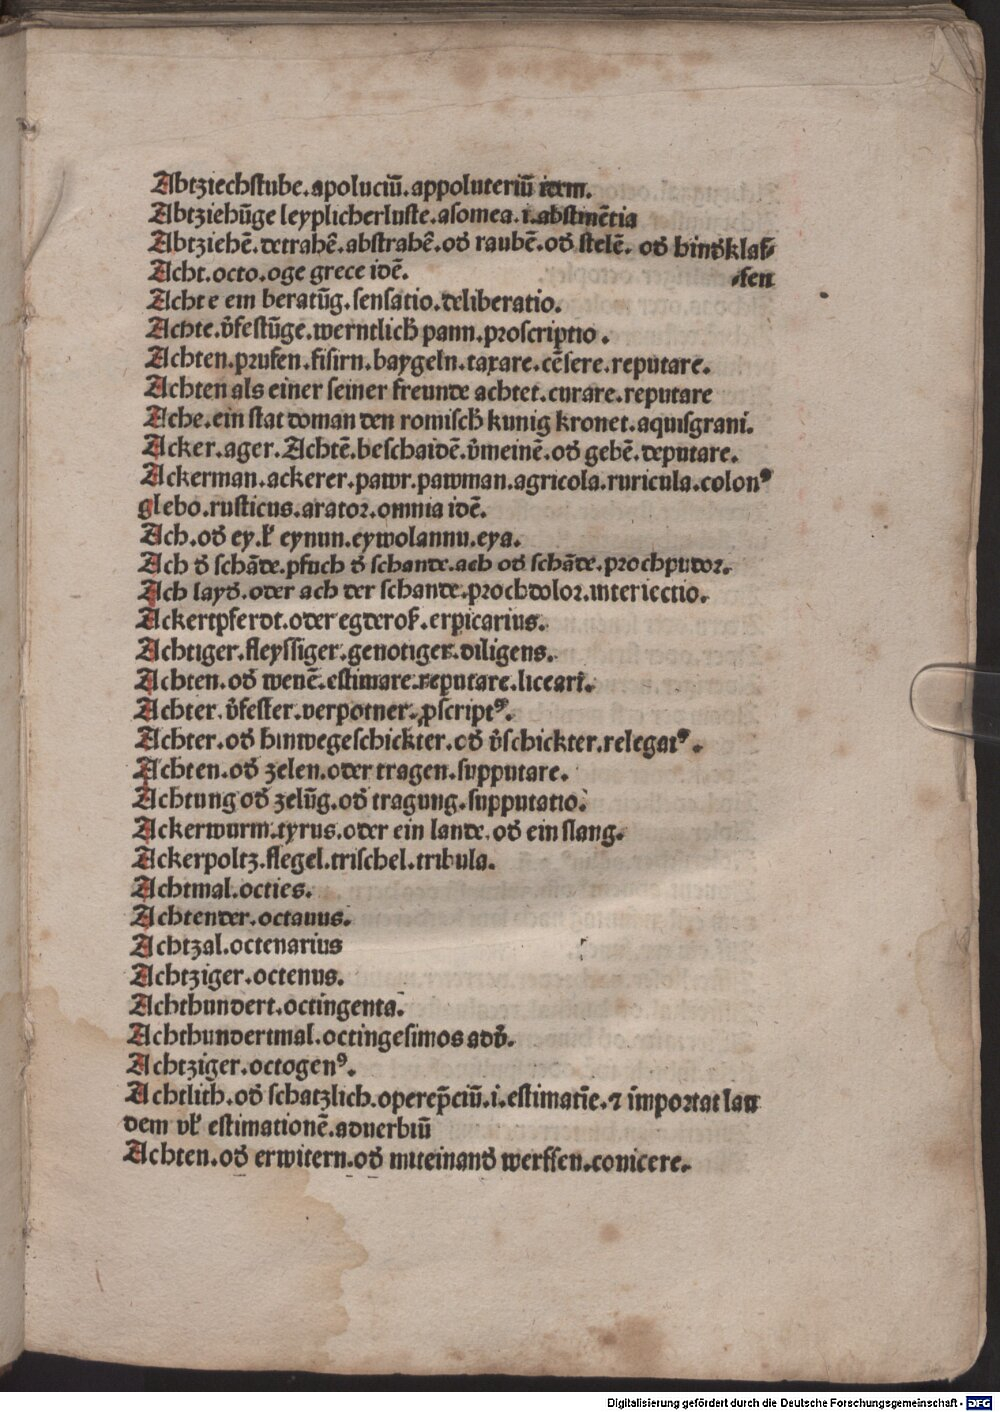 Abtziechstube.apoluciū.appoluteriū item.
Abtziehūge leyplicherluste.asomea.i.abstinētia
Abtziehē.detrahē.abstrahē.od̓ raubē.od̓ stelē. od̓ hind̓klas⸗
Acht.octo.oge grece idē. ⸗sen
Achte ein beratūg.sensatio.deliberatio.
Achte.v̓festūge.werntlich̓ pann.proscriptio.
Achten.prufen.fisirn.baygeln.taxare.cēsere.reputare.
Achten als einer seiner freunde achtet.curare.reputare
Ache.ein stat doman den romisch̓ kunig kronet.aquisgrani.
Acker.ager.Achtē.beschaidē.v̓meinē.od̓ gebē.deputare.
Ackerman.ackerer.pawr.pawman.agricola.ruricula.colonꝰ
glebo.rusticus.arator.omnia idē.
Ach.od̓ ey.vł eynun.eywolannu.eya.
Ach d̓ schāde.pfuch d̓ schande.ach od̓ schāde.prochpudor.
Ach layd.oder ach der schande.prochdolor.interiectio.
Ackertpferdt.oder egderoß.erpicarius.
Achtiger.fleyssiger.genotiger.diligens.
Achten.od̓ wenē.estimare.reputare.liceari.
Achter.v̓fester.verpotner.ꝓscriptꝰ.
Achter.od̓ hinwegeschickter.od̓ v̓schickter.relegatꝰ.
Achten.od̓ zelen.oder tragen.supputare.
Achtung od̓ zelūg.od̓ tragung.supputatio.
Ackerwurm.tyrus.oder ein lande.od̓ ein slang.
Ackerpoltz.flegel.trischel.tribula.
Achtmal.octies.
Achtender.octauus.
Achtzal.octenarius
Achtziger.octenus.
Achthundert.octingenta.
Achthundertmal.octingesimos adv̓.
Achtziger.octogenꝰ.
Achtlich.od̓ schatzlich.operep̄ciū.i.estimatiē.⁊ īmportat lau
dem vł estimationē.aduerbiū
Achten.od̓ erwitern.od̓ miteinand̓ werffen.conicere.
Digitalisierung gefördert durch die Deutsche Forschungsgemeinschaft - DFG